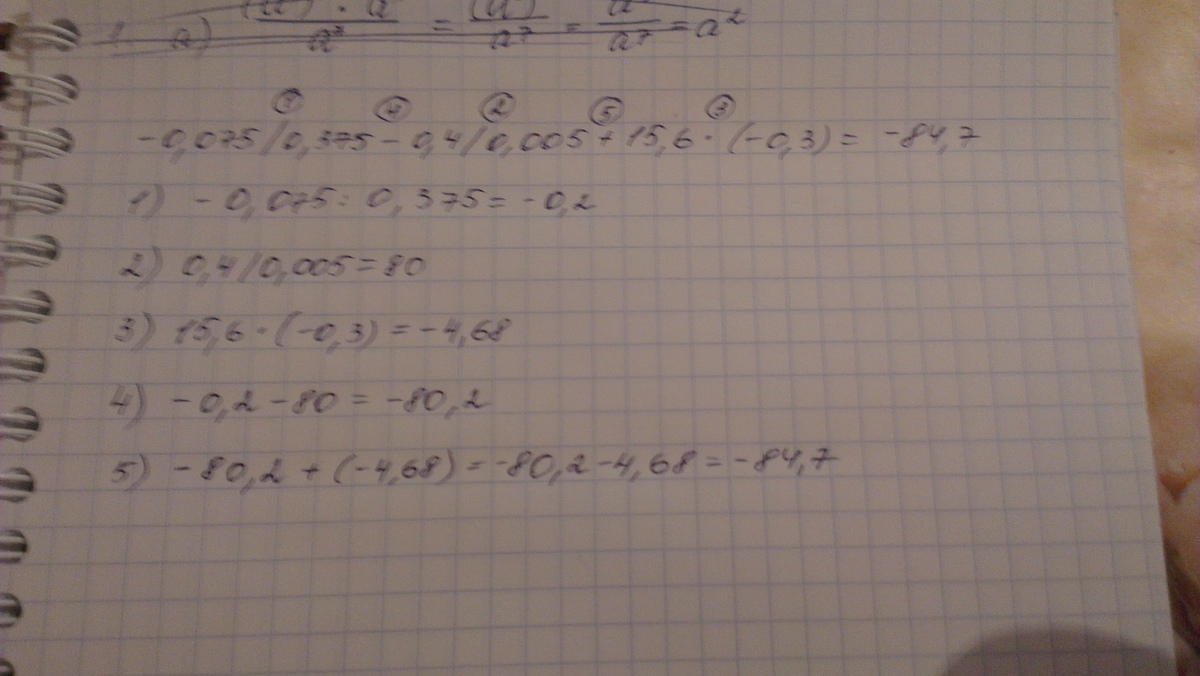 1. а) = = = a²
a⁷ a⁷
① ④ ② ⑤ ③
-0,075/0,375-0,4/0,005+15,6·(-0,3)= -84,7
1) -0,075:0,375=-0,2
2) 0,4/0,005=80
3) 15,6·(-0,3)=-4,68
4) -0,2-80=-80,2
5) -80,2+(-4,68)=-80,2-4,68=-84,7